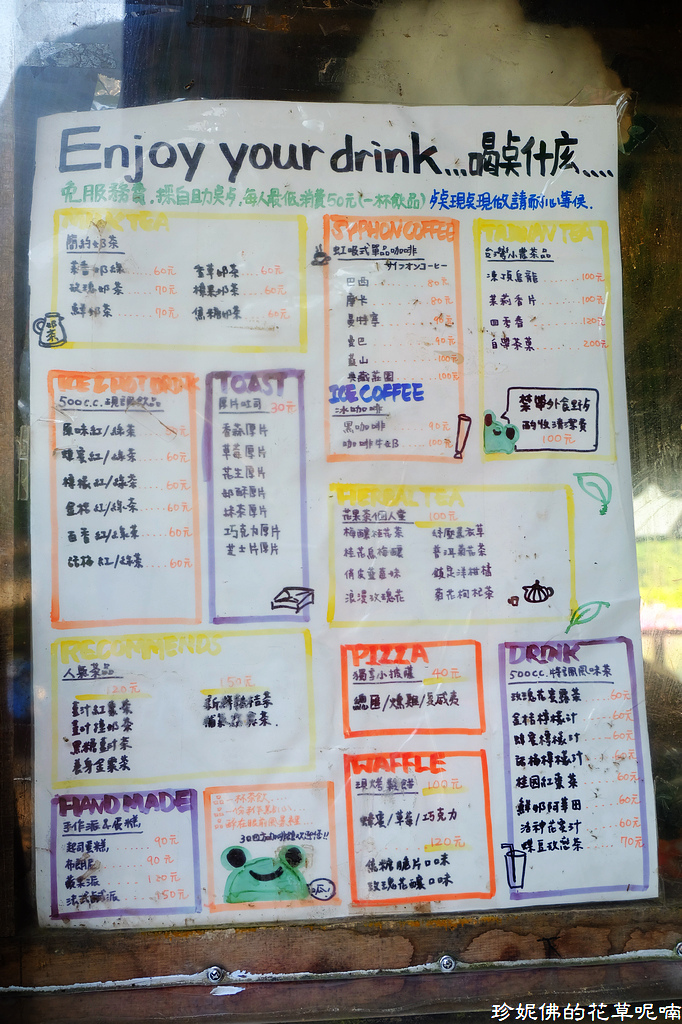 Enjoy your drink...喝桌什庅....
免服務費.採自助桌夕.每人最低消費50元(一杯飲品)
MILK TEA
簡約奶茶
茉香奶綠.....60元
玫瑰奶茶.....70元
鮮奶茶.....70元
薰草奶茶...60元
榛果奶茶...60元
焦糖奶茶...60元
奶茶
SYPHON COFFEE
虹吸式單品咖啡
サイフオンコーヒー
巴西.......80元
摩卡.......80元
曼特寧.......90元
藍山.......100元
典藏莊園.......100元
ICE COFFEE
冰咖啡
黑咖啡.......90元
咖啡牛奶...100元
TAIWAN TEA
台灣小農茶品
凍頂烏龍.......100元
茉莉香片.......100元
四季香.......120元
自帶茶葉.......200元
禁帶外食野夕
酌收清潔費
100元
ICE & HOT DRINK
500c.c.現調飲品
原味紅/綠茶
蜂蜜紅/綠茶....60元
檸檬紅/綠茶....60元
金桔紅/綠茶....60元
百香紅/綠茶....60元
話梅紅/綠茶....60元
TOAST
厚片吐司 30元
香蒜厚片
草莓厚片
花生厚片
奶酥厚片
抹茶厚片
巧克力厚片
芝士片厚片
HERBAL TEA
花果茶個人壺 100元
梅釀桂花茶
桂花烏梅釀
俏皮薑蕃妹
浪漫玫瑰花
紓壓薰衣草
普洱菊花茶
鎮定洋柑橘
菊花枸杞茶
RECOMMENDS
人氣茶品
120元
薑汁紅棗茶
薑汁撞奶茶
黑糖薑汁茶
養身堅果茶
150元
新鮮桔桔茶
PIZZA
獨享小披薩 40元
總匯/燻雞/夏威夷
WAFFLE
現烤鬆餅 100元
蜂蜜/草莓/巧克力
120元
焦糖脆片口味
玫瑰花釀口味
DRINK
500c.c.特調風味茶
玫瑰花蜜露茶...60元
金桔檸檬汁...60元
蜂蜜檸檬汁...60元
話梅檸檬汁...60元
桂圓紅棗茶...60元
鮮奶阿華田...60元
洛神花蜜汁...60元
蝶豆玫瑰茶...70元
HAND MADE
手作派&蛋糕
起司蛋糕...90元
布朗尼......90元
蘋果派......120元
法式鹹派......150元
一杯茶飲...
呱!
珍妮佛的花草呢喃